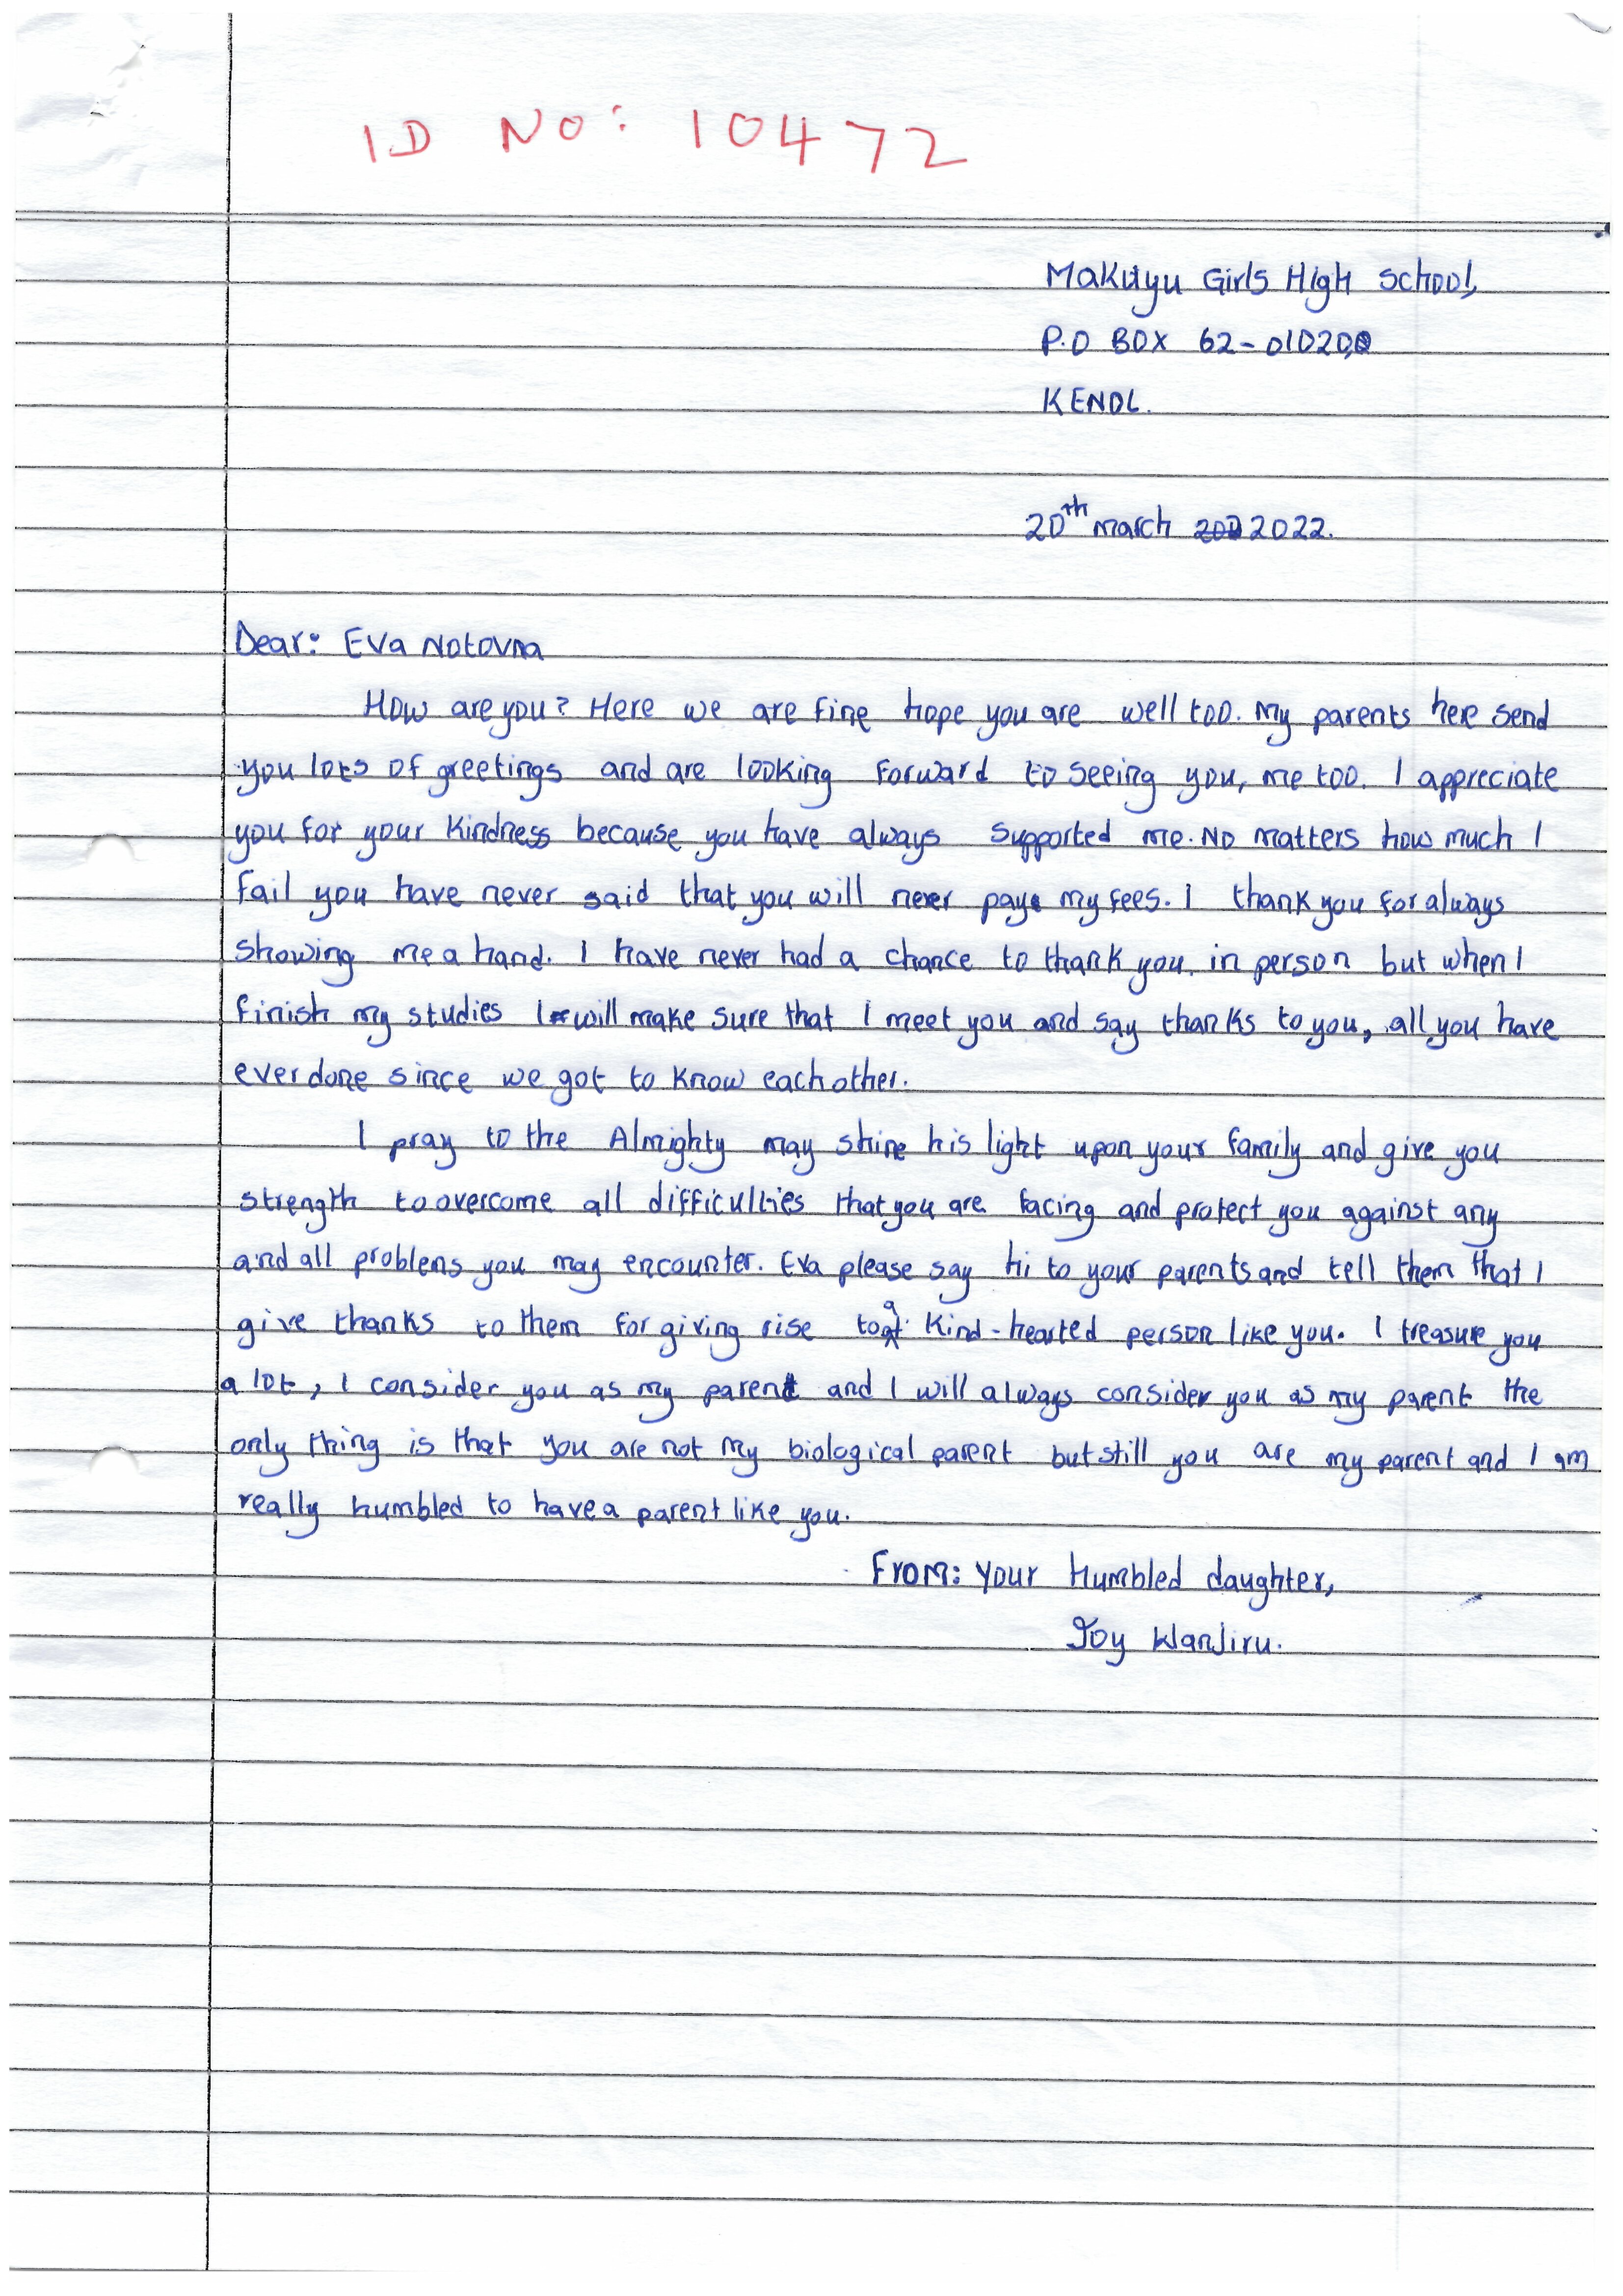 ID NO: 10472
Makuyu Girls High School,
P.O BOX 62-01020,
KENOL.
20th march 2022.
Dear: Eva Notovna
How are you? Here we are fine hope you are well too. My parents here send
you lots of greetings and are looking forward to seeing you, me too. I appreciate
you for your kindness because you have always supported me. No matters how much I
fail you have never said that you will never pay my fees. I thank you for always
showing me a hand. I have never had a chance to thank you in person but when I
finish my studies I will make sure that I meet you and say thanks to you, all you have
ever done since we got to know eachother.
I pray to the Almighty may shine his light upon your family and give you
strength to overcome all difficulties that you are facing and protect you against any
and all problems you may encounter. Eva please say hi to your parents and tell them that I
give thanks to them for giving rise to a kind-hearted person like you. I treasure you
a lot, I consider you as my parent and I will always consider you as my parent the
only thing is that you are not my biological parent but still you are my parent and I am
really humbled to have a parent like you.
From: Your Humbled daughter,
Joy Wanjiru.